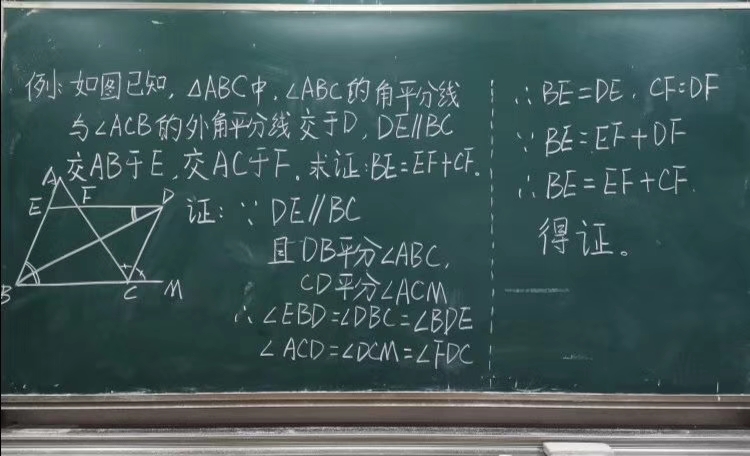 例:如图已知,△ABC中,∠ABC的角平分线
与∠ACB的外角平分线交于D,DE∥BC
交AB于E,交AC于F.求证:BE=EF+CF.
A
F
D
E
B
C
M
证:∵DE∥BC
且DB平分∠ABC,
CD平分∠ACM
∴∠EBD=∠DBC=∠BDE
∠ACD=∠DCM=∠FDC
∴BE=DE.CF=DF
∵BE=EF+DF
∴BE=EF+CF.
得证。